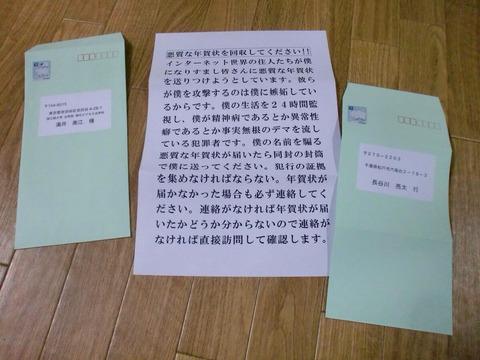 悪質な年賀状を回収してください!!
インターネット世界の住人たちが僕
になりすまし皆さんに悪質な年賀状
を送りつけようとしています。彼ら
が僕を攻撃するのは僕に嫉妬してい
るからです。僕の生活を24時間監
視し、僕が精神病であるとか異常性
癖であるとか事実無根のデマを流し
ている犯罪者です。僕の名前を騙る
悪質な年賀状が届いたら同封の封筒
で僕に送ってください。犯行の証拠
を集めなければならない。年賀状が
届かなかった場合も必ず連絡してく
ださい。連絡がなければ年賀状が届
いたかどうか分からないので連絡が
なければ直接訪問して確認します。
〒270-2203
千葉県松戸市六高台2-78-3
長谷川 亮太 行